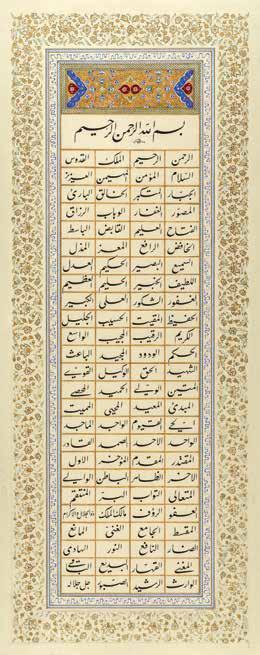 بسم الله الرحمن الرحيم
الرحمن الرحيم الملك القدوس
السلام المؤمن المهيمن العزيز
الجبار المتكبر الخالق البارئ
المصور الغفار الوهاب الرزاق
الفتاح العليم القابض الباسط
الخافض الرافع المعز المذل
السميع البصير الحكيم العدل
اللطيف الخبير الحليم العظيم
الغفور الشكور العلي الكبير
الحفيظ المقيت الحسيب الجليل
الكريم الرقيب المجيب الواسع
الحكم الودود المجيد الباعث
الشهيد الحق الوكيل القوي
المتين الولي الحميد المحصي
المبدئ المعيد المحيي المميت
الحي القيوم الواجد الماجد
الواحد الاحد الصمد القادر
المقتدر المقدم المؤخر الاول
الآخر الظاهر الباطن الوالي
المتعالي التواب البر المنتقم
العفو الرؤف مالك الملك ذو الجلال والاكرام
المقسط الجامع الغني المانع
الضار النافع النور الهادي
البديع
الوارث الرشيد الصبور جل جلاله